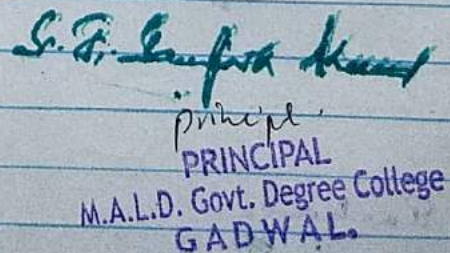 S. J.
principl.
PRINCIPAL
M.A.L.D. Govt. Degree College
GADWAL.